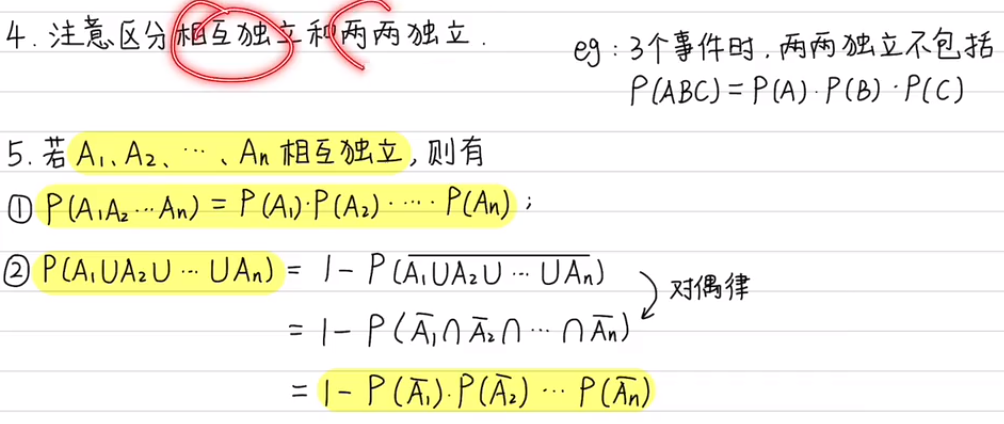 4. 注意区分相互独立和两两独立.
eg: 3个事件时, 两两独立不包括
P(ABC) = P(A)·P(B)·P(C)
5. 若 A₁、A₂、…、Aₙ 相互独立, 则有
① P(A₁A₂…Aₙ) = P(A₁)·P(A₂)·…·P(Aₙ);
② P(A₁∪A₂∪…∪Aₙ) = 1 - P(A̅₁̅∪̅A̅₂̅∪̅…̅∪̅A̅ₙ̅)
对偶律
= 1 - P(A̅₁∩A̅₂∩…∩A̅ₙ)
= 1 - P(A̅₁)·P(A̅₂)…P(A̅ₙ)